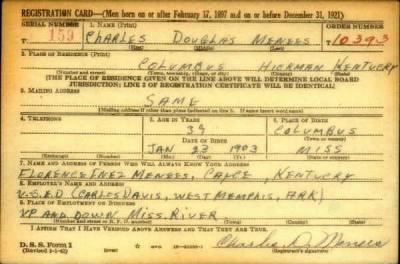 REGISTRATION CARD—(Men born on or after February 17, 1897 and on or before December 31, 1921)
SERIAL NUMBER 1. NAME (Print) ORDER NUMBER
159 CHARLES DOUGLAS MENEES 10393
(First) (Middle) (Last)
2. PLACE OF RESIDENCE (Print)
COLUMBUS HICKMAN KENTUCKY
(Number and street) (Town, township, village, or city) (County) (State)
[THE PLACE OF RESIDENCE GIVEN ON THE LINE ABOVE WILL DETERMINE LOCAL BOARD
JURISDICTION; LINE 2 OF REGISTRATION CERTIFICATE WILL BE IDENTICAL]
3. MAILING ADDRESS
SAME
[Mailing address if other than place indicated on line 2. If same insert word same]
4. TELEPHONE 5. AGE IN YEARS 6. PLACE OF BIRTH
39 COLUMBUS
DATE OF BIRTH (Town or county)
JAN 23 1903 MISS
(Exchange) (Number) (Mo.) (Day) (Yr.) (State or country)
7. NAME AND ADDRESS OF PERSON WHO WILL ALWAYS KNOW YOUR ADDRESS
FLORENCE INEZ MENEES, CAYCE, KENTUCKY
8. EMPLOYER'S NAME AND ADDRESS
U.S.E.D (CARLOS DAVIS, WEST MEMPHIS, ARK)
9. PLACE OF EMPLOYMENT OR BUSINESS
UP AND DOWN MISS. RIVER
(Number and street or R. F. D. number) (Town) (County) (State)
I AFFIRM THAT I HAVE VERIFIED ABOVE ANSWERS AND THAT THEY ARE TRUE.
D. S. S. Form 1 Charles D. Menees
(Revised 1-1-42) (Registrant's signature)